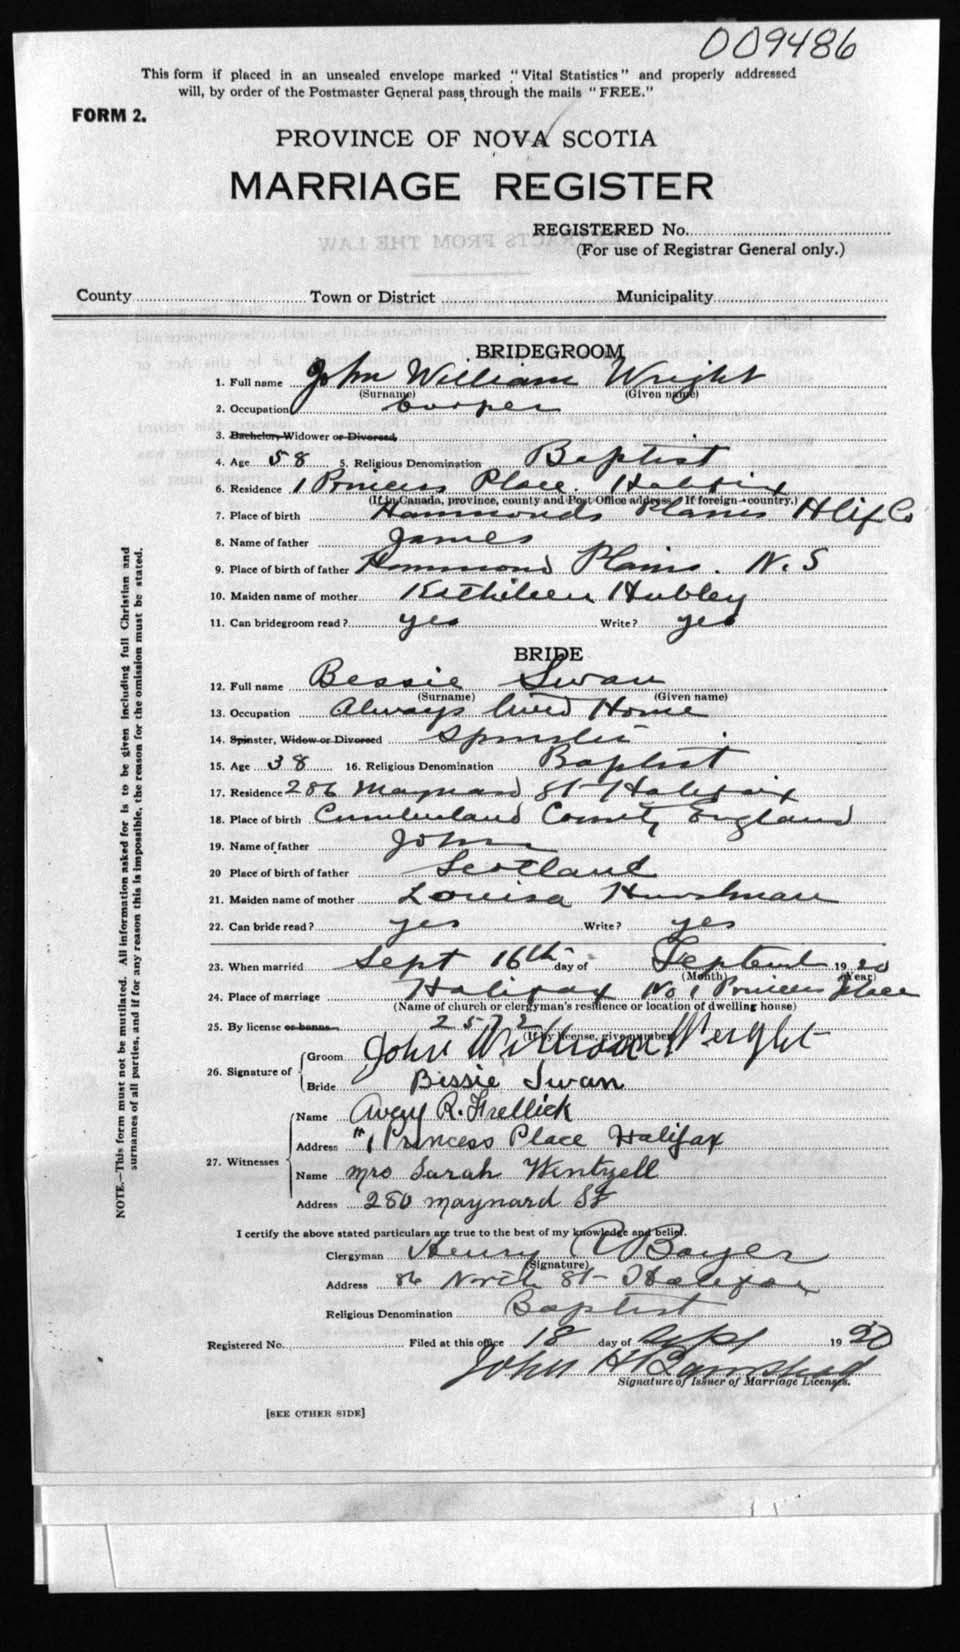 009486
This form if placed in an unsealed envelope marked "Vital Statistics" and properly addressed
will, by order of the Postmaster General pass through the mails "FREE."
FORM 2.
PROVINCE OF NOVA SCOTIA
MARRIAGE REGISTER
REGISTERED No.
(For use of Registrar General only.)
County Town or District Municipality
BRIDEGROOM
1. Full name John William Wright
(Surname) (Given name)
2. Occupation Cooper
3. Bachelor, Widower or Divorced
4. Age 58 5. Religious Denomination Baptist
6. Residence 1 Princess Place. Halifax
(If in Canada, province, county and Post Office address. If foreign—country.)
7. Place of birth Hammonds Plains Hlifx Co
8. Name of father James
9. Place of birth of father Hammond Plains. N.S
10. Maiden name of mother Kathileen Hubley
11. Can bridegroom read? yes Write? yes
BRIDE
12. Full name Bessie Swan
(Surname) (Given name)
13. Occupation Always lived Home
14. Spinster, Widow or Divorced Spinster
15. Age 38 16. Religious Denomination Baptist
17. Residence 286 Maynard St Halifax
18. Place of birth Cumberland County England
19. Name of father John
20 Place of birth of father Scotland
21. Maiden name of mother Louisa
22. Can bride read? yes Write? yes
23. When married Sept 16th day of September 1920
(Month) (Year)
24. Place of marriage Halifax No 1 Princess Place
(Name of church or clergyman's residence or location of dwelling house)
25. By license or banns 2572
(If by license, give number)
26. Signature of
Groom John William Wright
Bride Bissie Swan
27. Witnesses
Name Avery R. Frellick
Address #1 Princess Place Halifax
Name Mrs Sarah Wentzell
Address 280 Maynard St
I certify the above stated particulars are true to the best of my knowledge and belief.
Clergyman Henry Boyer
(Signature)
Address 86 North St Halifax
Religious Denomination Baptist
Registered No. Filed at this office 18 day of Sept 1920
John H
Signature of Issuer of Marriage Licenses.
[SEE OTHER SIDE]
NOTE.—This form must not be mutilated. All information asked for is to be given including full Christian and
surnames of all parties, and if for any reason this is impossible, the reason for the omission must be stated.